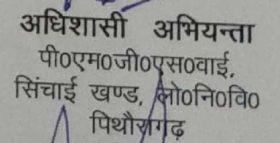 अधिशासी अभियन्ता
पी०एम०जी०एस०वाई,
सिंचाई खण्ड, लो०नि०वि०
पिथौरागढ़